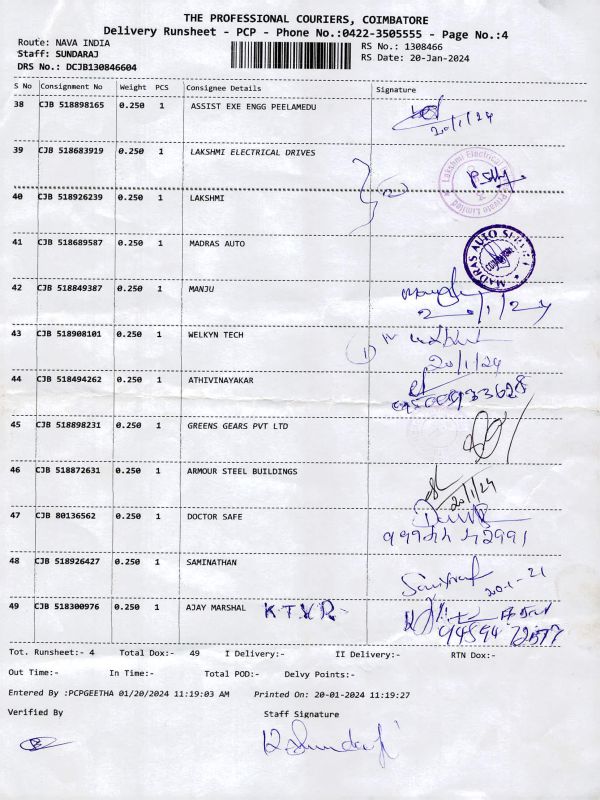 THE PROFESSIONAL COURIERS, COIMBATORE
Delivery Runsheet - PCP - Phone No.:0422-3505555 - Page No.:4
Route: NAVA INDIA RS No.: 1308466
Staff: SUNDARAJ RS Date: 20-Jan-2024
DRS No.: DCJB130846604
S No Consignment No Weight PCS Consignee Details Signature
38 CJB 518898165 0.250 1 ASSIST EXE ENGG PEELAMEDU
20/1/24
39 CJB 518683919 0.250 1 LAKSHMI ELECTRICAL DRIVES
Lakshmi Electrical Private Limited
40 CJB 518926239 0.250 1 LAKSHMI
41 CJB 518689587 0.250 1 MADRAS AUTO
MADRAS AUTO
42 CJB 518849387 0.250 1 MANJU
20/1/24
43 CJB 518908101 0.250 1 WELKYN TECH
20/1/24
44 CJB 518494262 0.250 1 ATHIVINAYAKAR
45 CJB 518898231 0.250 1 GREENS GEARS PVT LTD
46 CJB 518872631 0.250 1 ARMOUR STEEL BUILDINGS
20/1/24
47 CJB 80136562 0.250 1 DOCTOR SAFE
48 CJB 518926427 0.250 1 SAMINATHAN
49 CJB 518300976 0.250 1 AJAY MARSHAL K.T.V.R.
Tot. Runsheet:- 4 Total Dox:- 49 I Delivery:- II Delivery:- RTN Dox:-
Out Time:- In Time:- Total POD:- Delvy Points:-
Entered By :PCPGEETHA 01/20/2024 11:19:03 AM Printed On: 20-01-2024 11:19:27
Verified By Staff Signature